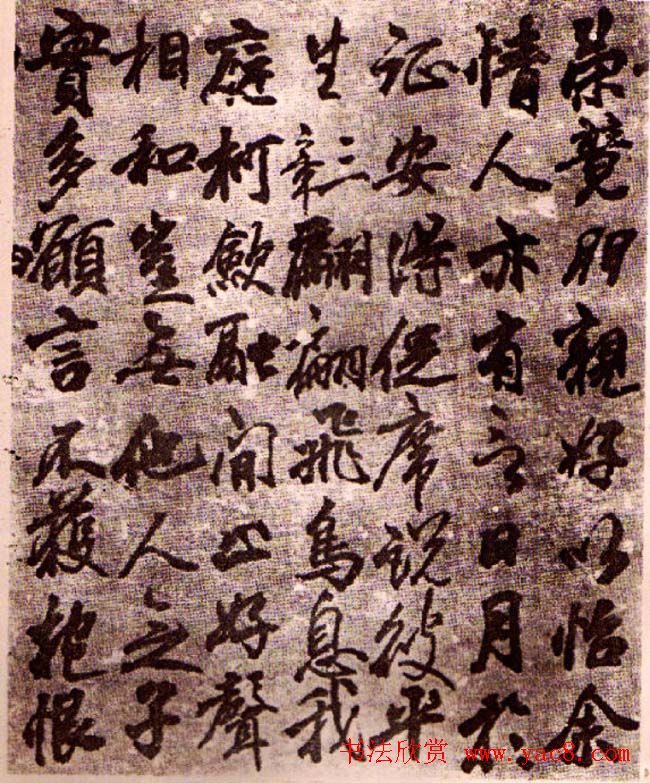 榮競朋親好以怡余
情人亦有言日月於
征安得促席說彼平
生三章翩翩飛鳥息我
庭柯斂翮閒止好聲
相和豈無他人念子
實多願言不獲抱恨
书法欣赏 www.yac8.com